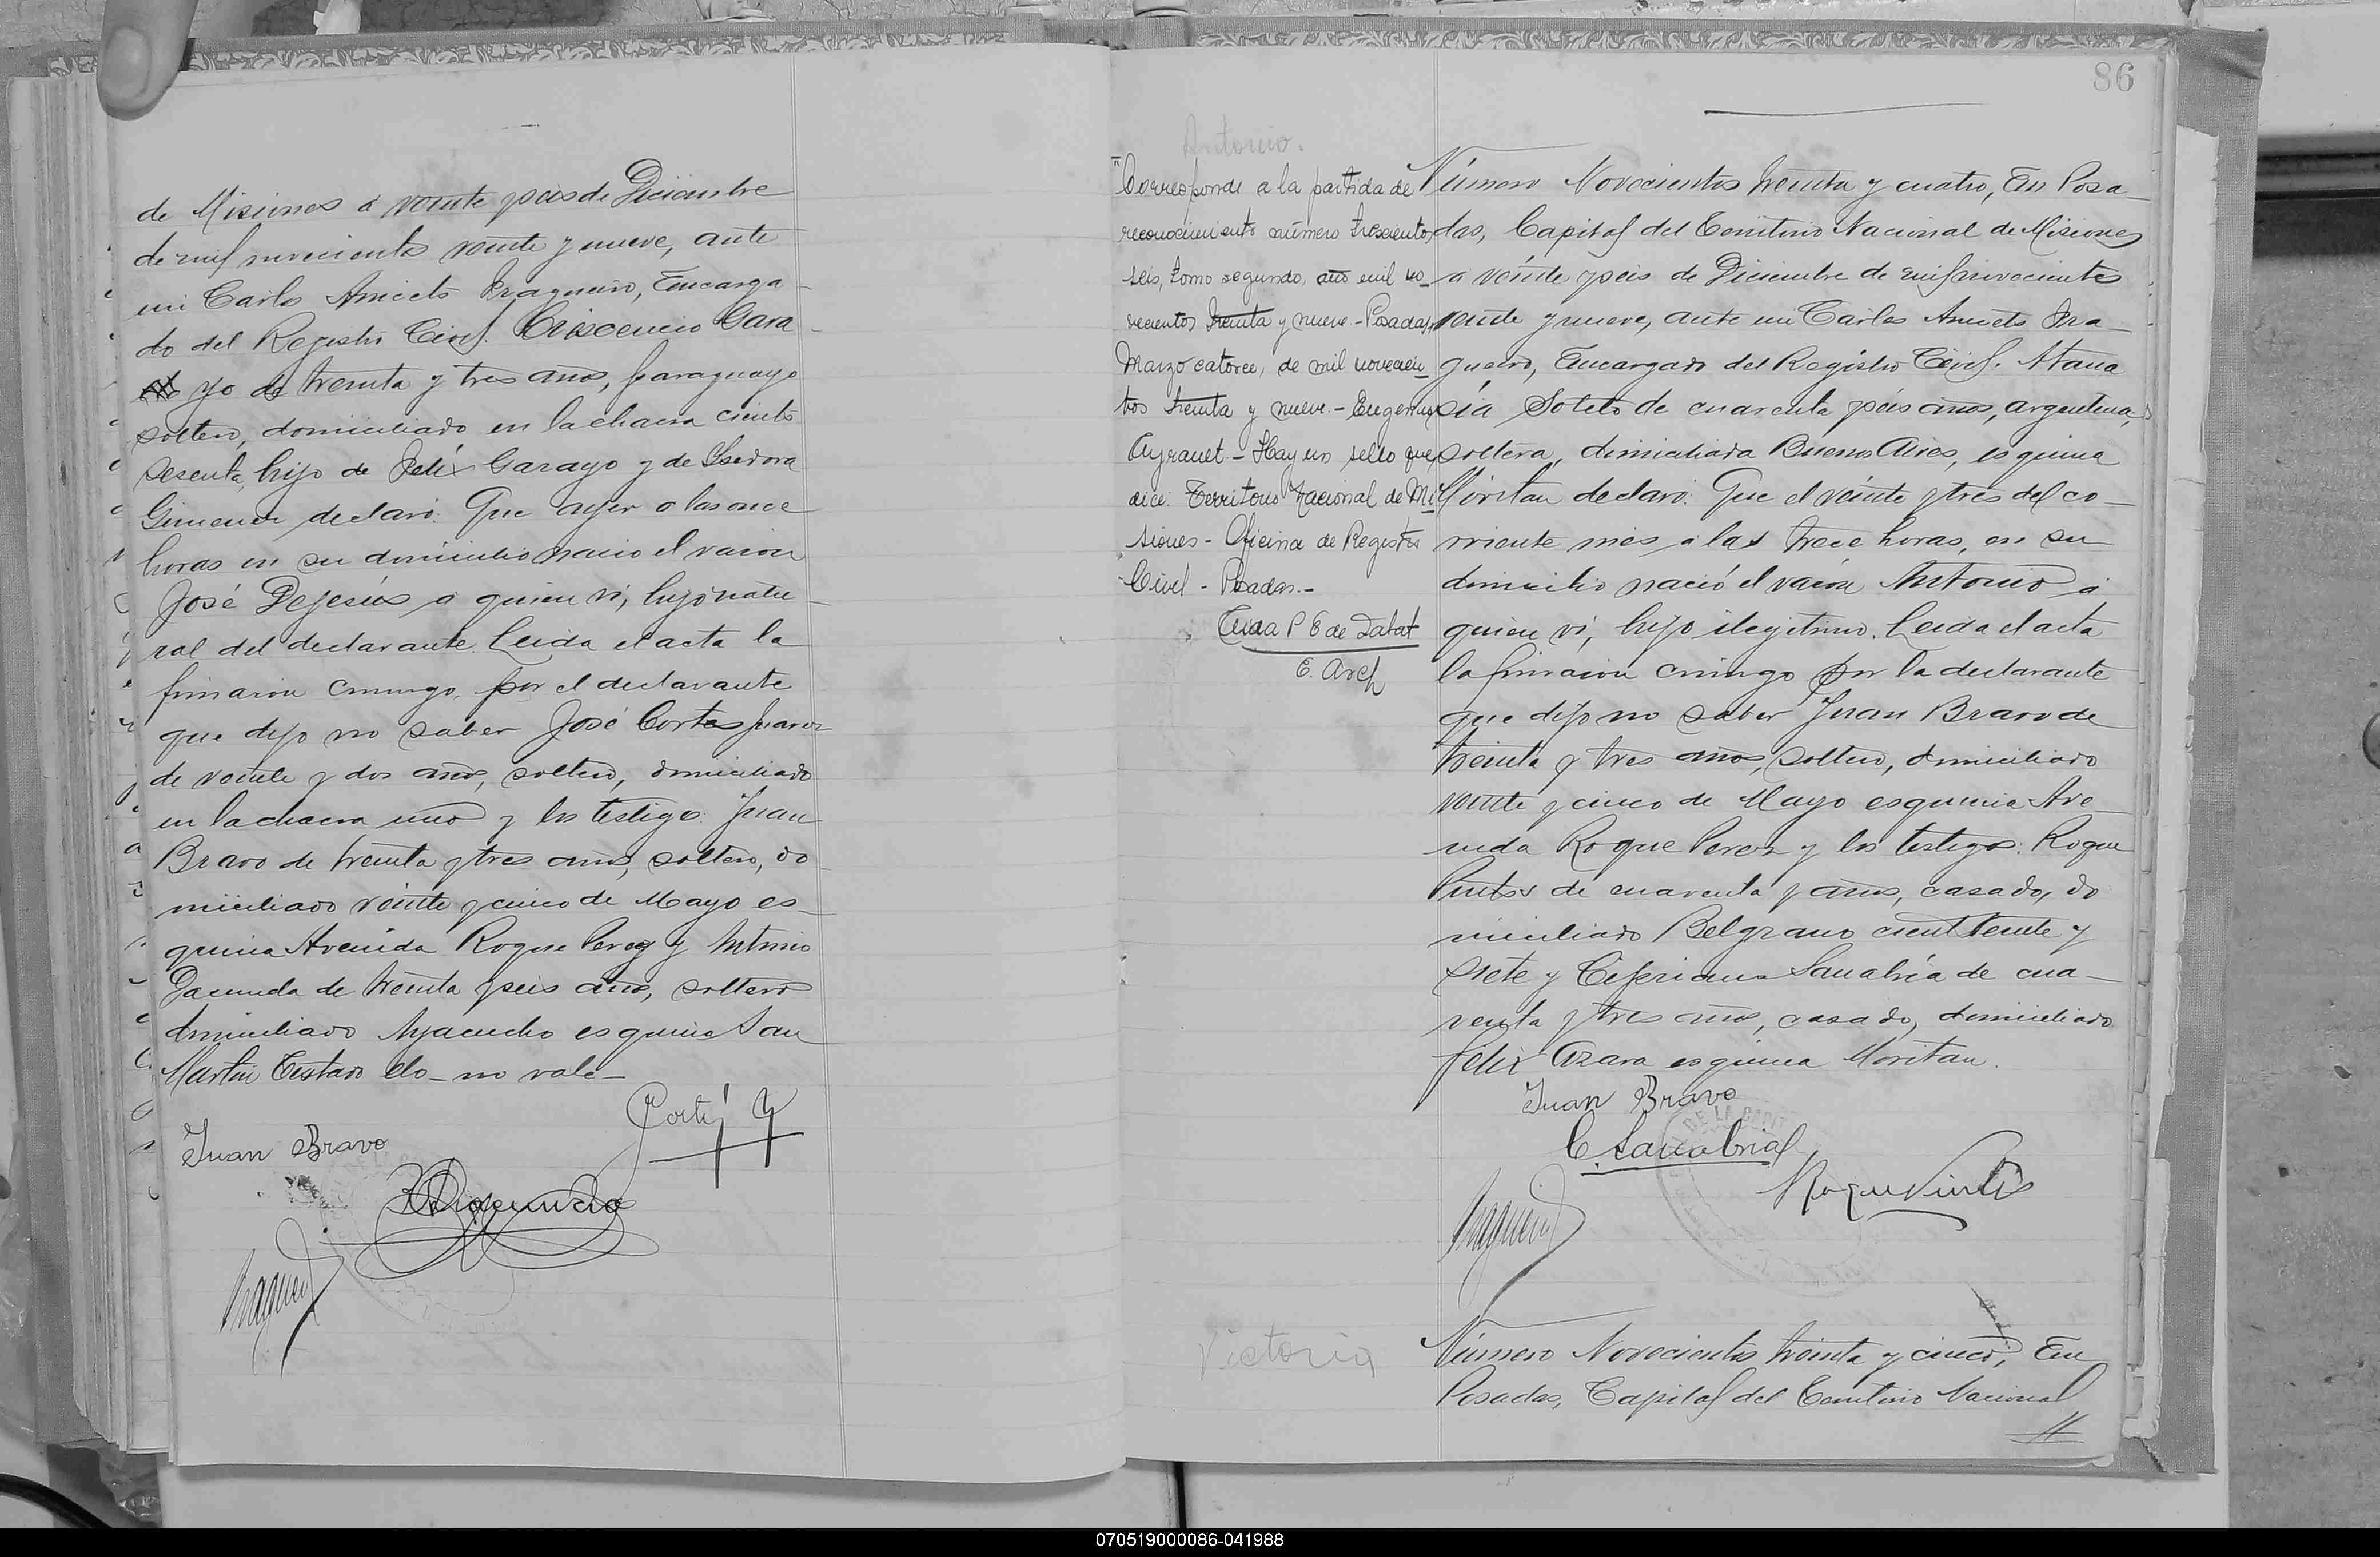 de Misiones á veinte y seis de Diciembre
de mil novecientos veinte y nueve, ante
mi Carlos Aniceto Fragueiro, Encarga-
do del Registro Civil. Criscencio Gara-
yo de treinta y tres años, paraguayo
soltero, domiciliado en la chacra ciento
sesenta, hijo de Felix Garayo y de Isidora
Gimenez declaró: Que ayer a las once
horas en su domicilio nació el varon
José Dejesús a quien vi, hijo natu-
ral del declarante. Leida el acta la
firmaron conmigo, por el declarante
que dijo no saber José Cortes
de veinte y dos años, soltero, domiciliado
en la chacra uno y los testigos: Juan
Bravo de treinta y tres años, soltero, do-
miciliado veinte y cinco de Mayo es-
quina Avenida Roque Perez y Antonio
de treinta y seis años, soltero
domiciliado Ayacucho esquina San
Martin Testado do - no vale -
Juan Bravo
86
Antonio.
"Corresponde a la partida de
reconocimiento número trescientos
seis, tomo segundo, año mil no-
vecientos treinta y nueve - Posadas,
Marzo catorce, de mil novecien-
tos treinta y nueve. - Eugenio
- Hay un sello que
dice: Territorio Nacional de Mi-
siones - Oficina de Registro
Civil - Posadas. -
E. Arch
Número Novecientos treinta y cuatro, En Posa-
das, Capital del Territorio Nacional de Misiones
a veinte y seis de Diciembre de mil novecientos
veinte y nueve, ante mi Carlos Aniceto Fra-
gueiro, Encargado del Registro Civil. Atana
sia Sotelo de cuarenta y seis años, argentina,
soltera, domiciliada Buenos Aires, esquina
Moritan declaró: Que el veinte y tres del co-
rriente mes a las trece horas, en su
domicilio nació el varón Antonio á
quien vi, hijo ilegitimo. Leida el acta
la firmaron conmigo por la declarante
que dijo no saber Juan Bravo de
treinta y tres años, soltero, domiciliado
veinte y cinco de Mayo esquina Ave-
nida Roque Perez y los testigos: Roque
de cuarenta y años, casado, do
miciliado Belgrano y
siete y Cipriano Sanabria de cua-
renta y tres años, casado, domiciliado
Felix Azara esquina Moritan.
Juan Bravo
C. Sanabria
Victoria
Número Novecientos treinta y cinco, En
Posadas, Capital del Territorio Nacional
070519000086-041988